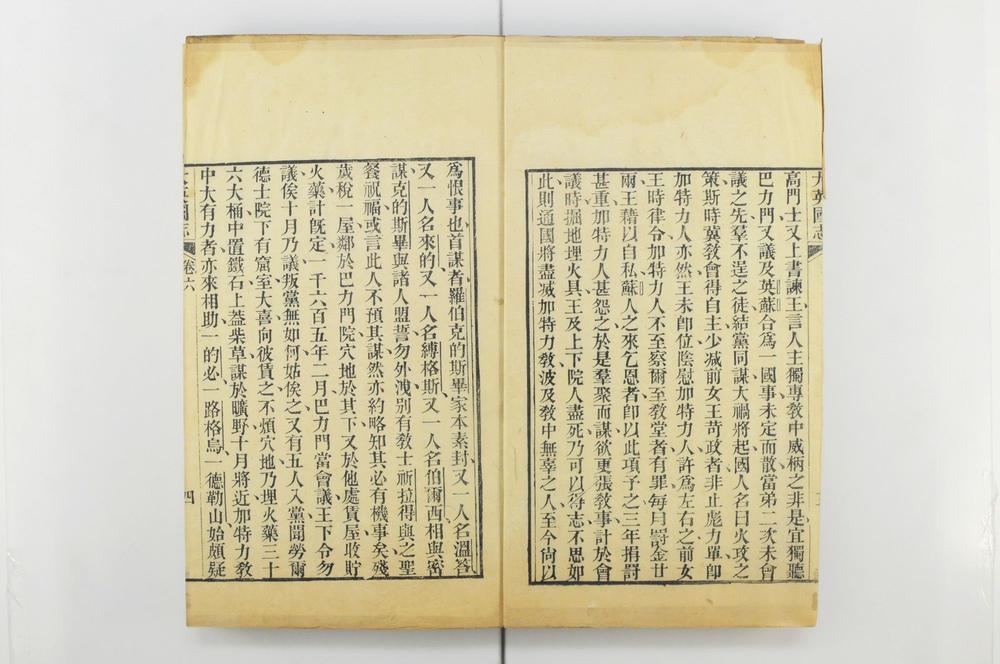 大英國志
高門士又上書諫王言人主獨專敎中威柄之非是宜獨聽
巴力門又議及英蘇合爲一國事未定而散當第二次未會
議之先羣不逞之徒結黨同謀大禍將起國人名曰火攻之
策斯時冀敎會得自主少减前女王苛政者非止彪力單卽
加特力人亦然王未卽位陰慰加特力人許爲左右之前女
王時律令加特力人不至察爾至敎堂者有罪每月罸金廿
兩王藉以自私蘇人之來乞恩者卽以此項予之三年捐罸
甚重加特力人甚怨之於是羣聚而謀欲更張敎事計於會
議時掘地埋火具王及上下院人盡死乃可以得志不思如
此則通國將盡滅加特力敎波及敎中無辜之人至今尙以
爲恨事也首謀者羅伯克的斯畢家本素封又一人名溫答
又一人名來的又一人名縛格斯又一人名伯爾西相與密
謀克的斯畢與諸人盟誓勿外洩別有敎士祈拉得與之聖
餐祝福或言此人不預其謀然亦約略知其必有機事矣殘
歲稅一屋鄰於巴力門院穴地於其下又於他處賃屋收貯
火藥計旣定一千六百五年二月巴力門當會議王下令勿
議俟十月乃議叛黨無如何姑俟之又有五人入黨聞勞爾
德士院下有窟室大喜向彼賃之不煩穴地乃埋火藥三十
六大桶中置鐵石上葢柴草謀於曠野十月將近加特力敎
中大有力者亦來相助一的必一路格烏一德勒山始頗疑
大英國志 卷六 四